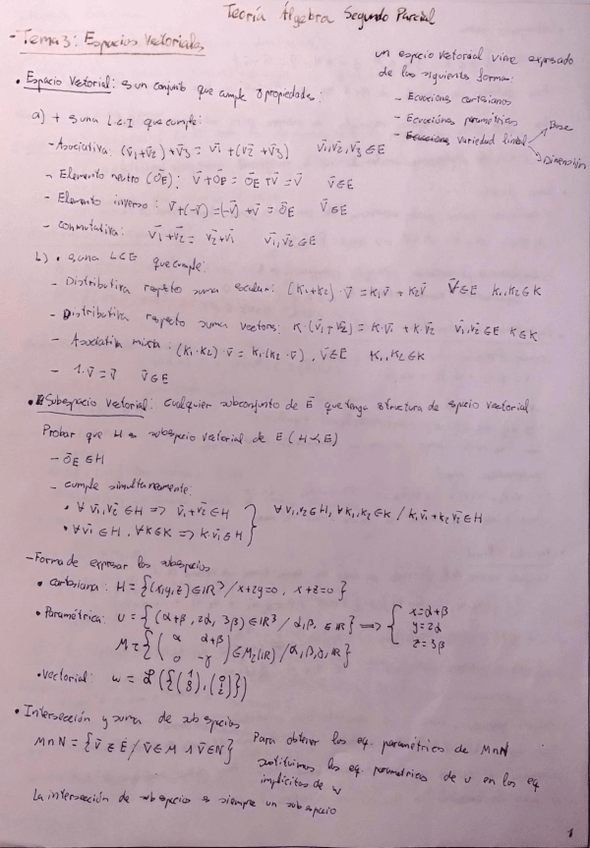 Teoría Álgebra Segundo Parcial
- Tema 3: Espacios Vectoriales
un espacio vectorial viene expresado
de las siguientes formas:
- Ecuaciones cartesianas
- Ecuaciones paramétricas
- Ecuaciones variedad lineal
Base
Dimensión
• Espacio Vectorial: es un conjunto que cumple 8 propiedades:
a) + es una L.C.I que cumple:
- Asociativa: (v̄1+v̄2)+v̄3 = v̄1+(v̄2+v̄3) v̄1,v̄2,v̄3 ∈ E
- Elemento neutro (ō_E): v̄+ō_E = ō_E+v̄ = v̄ v̄∈E
- Elemento inverso: v̄+(-v̄)=(-v̄)+v̄ = ō_E v̄∈E
- Conmutativa: v̄1+v̄2 = v̄2+v̄1 v̄1,v̄2∈E
b) • es una LCE que cumple:
- Distributiva respecto suma escalar: (k1+k2)·v̄ = k1v̄ + k2v̄ v̄∈E k1,k2∈K
- Distributiva respecto suma vectores: k·(v̄1+v̄2) = k·v̄1 + k·v̄2 v̄1,v̄2∈E k∈K
- Asociativa mixta: (k1·k2)·v̄ = k1·(k2·v̄), v̄∈E k1,k2∈K
- 1·v̄=v̄ v̄∈E
• Subespacio Vectorial: cualquier subconjunto de E que tenga estructura de espacio vectorial
Probar que H es subespacio vectorial de E (H ≺ E)
- ō_E ∈ H
- cumple simultaneamente:
• ∀ v̄1,v̄2 ∈ H => v̄1+v̄2 ∈ H } ∀ v̄1,v̄2∈H, ∀ k1,k2∈K / k1v̄1+k2v̄2∈H
• ∀v̄1∈H, ∀k∈K => k·v̄1∈H
- Forma de expresar los subespacios
• cartesiana: H = {(x,y,z)∈ℝ³ / x+2y=0, x+z=0}
• Paramétrica: U = {(α+β, 2α, 3β)∈ℝ³ / α,β ∈ℝ} => { x=α+β
y=2α
z=3β
M = {( α α+β
0 -γ ) ∈M₂(ℝ) / α,β,γ∈ℝ}
• vectorial: w = ℒ({(1
3),(0
2)})
• Intersección y suma de subespacios
M∩N = {v̄∈E / v̄∈M ∧ v̄∈N}
Para obtener las eq. paramétricas de M∩N
sustituimos las eq. parametricas de U en las eq
implicitas de w
La intersección de subespacios es siempre un subespacio
1